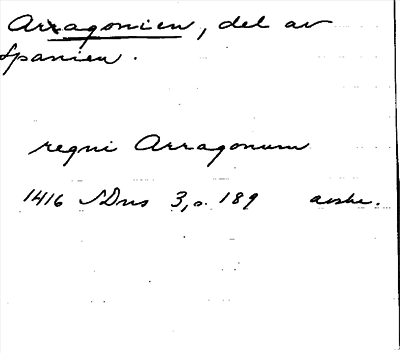 Arragonien, del av
Spanien.
regni Arragonum
1416 SDns 3, s. 189 avskr.